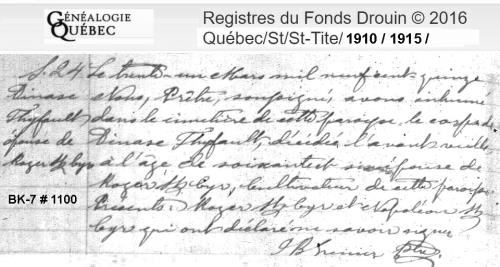 GÉNÉALOGIE
QUÉBEC
Registres du Fonds Drouin © 2016
Québec/St/St-Tite/ 1910 / 1915 /
S. 24 Le trente-un Mars mil neuf cent quinze
Dinase Nous, Prêtre, soussigné, avons inhumé
Thyfault dans le cimetière de cette paroisse, le corps de
épouse de Dinase Thyfault, décédée l'avant veille
Roger St Cyr à l'âge de soixante et épouse de
Roger St Cyr, cultivateur de cette paroisse
BK-7 # 1100
Présents: Roger St Cyr et Napoléon St
Cyr qui ont déclaré ne savoir signer
J B Grenier Ptre